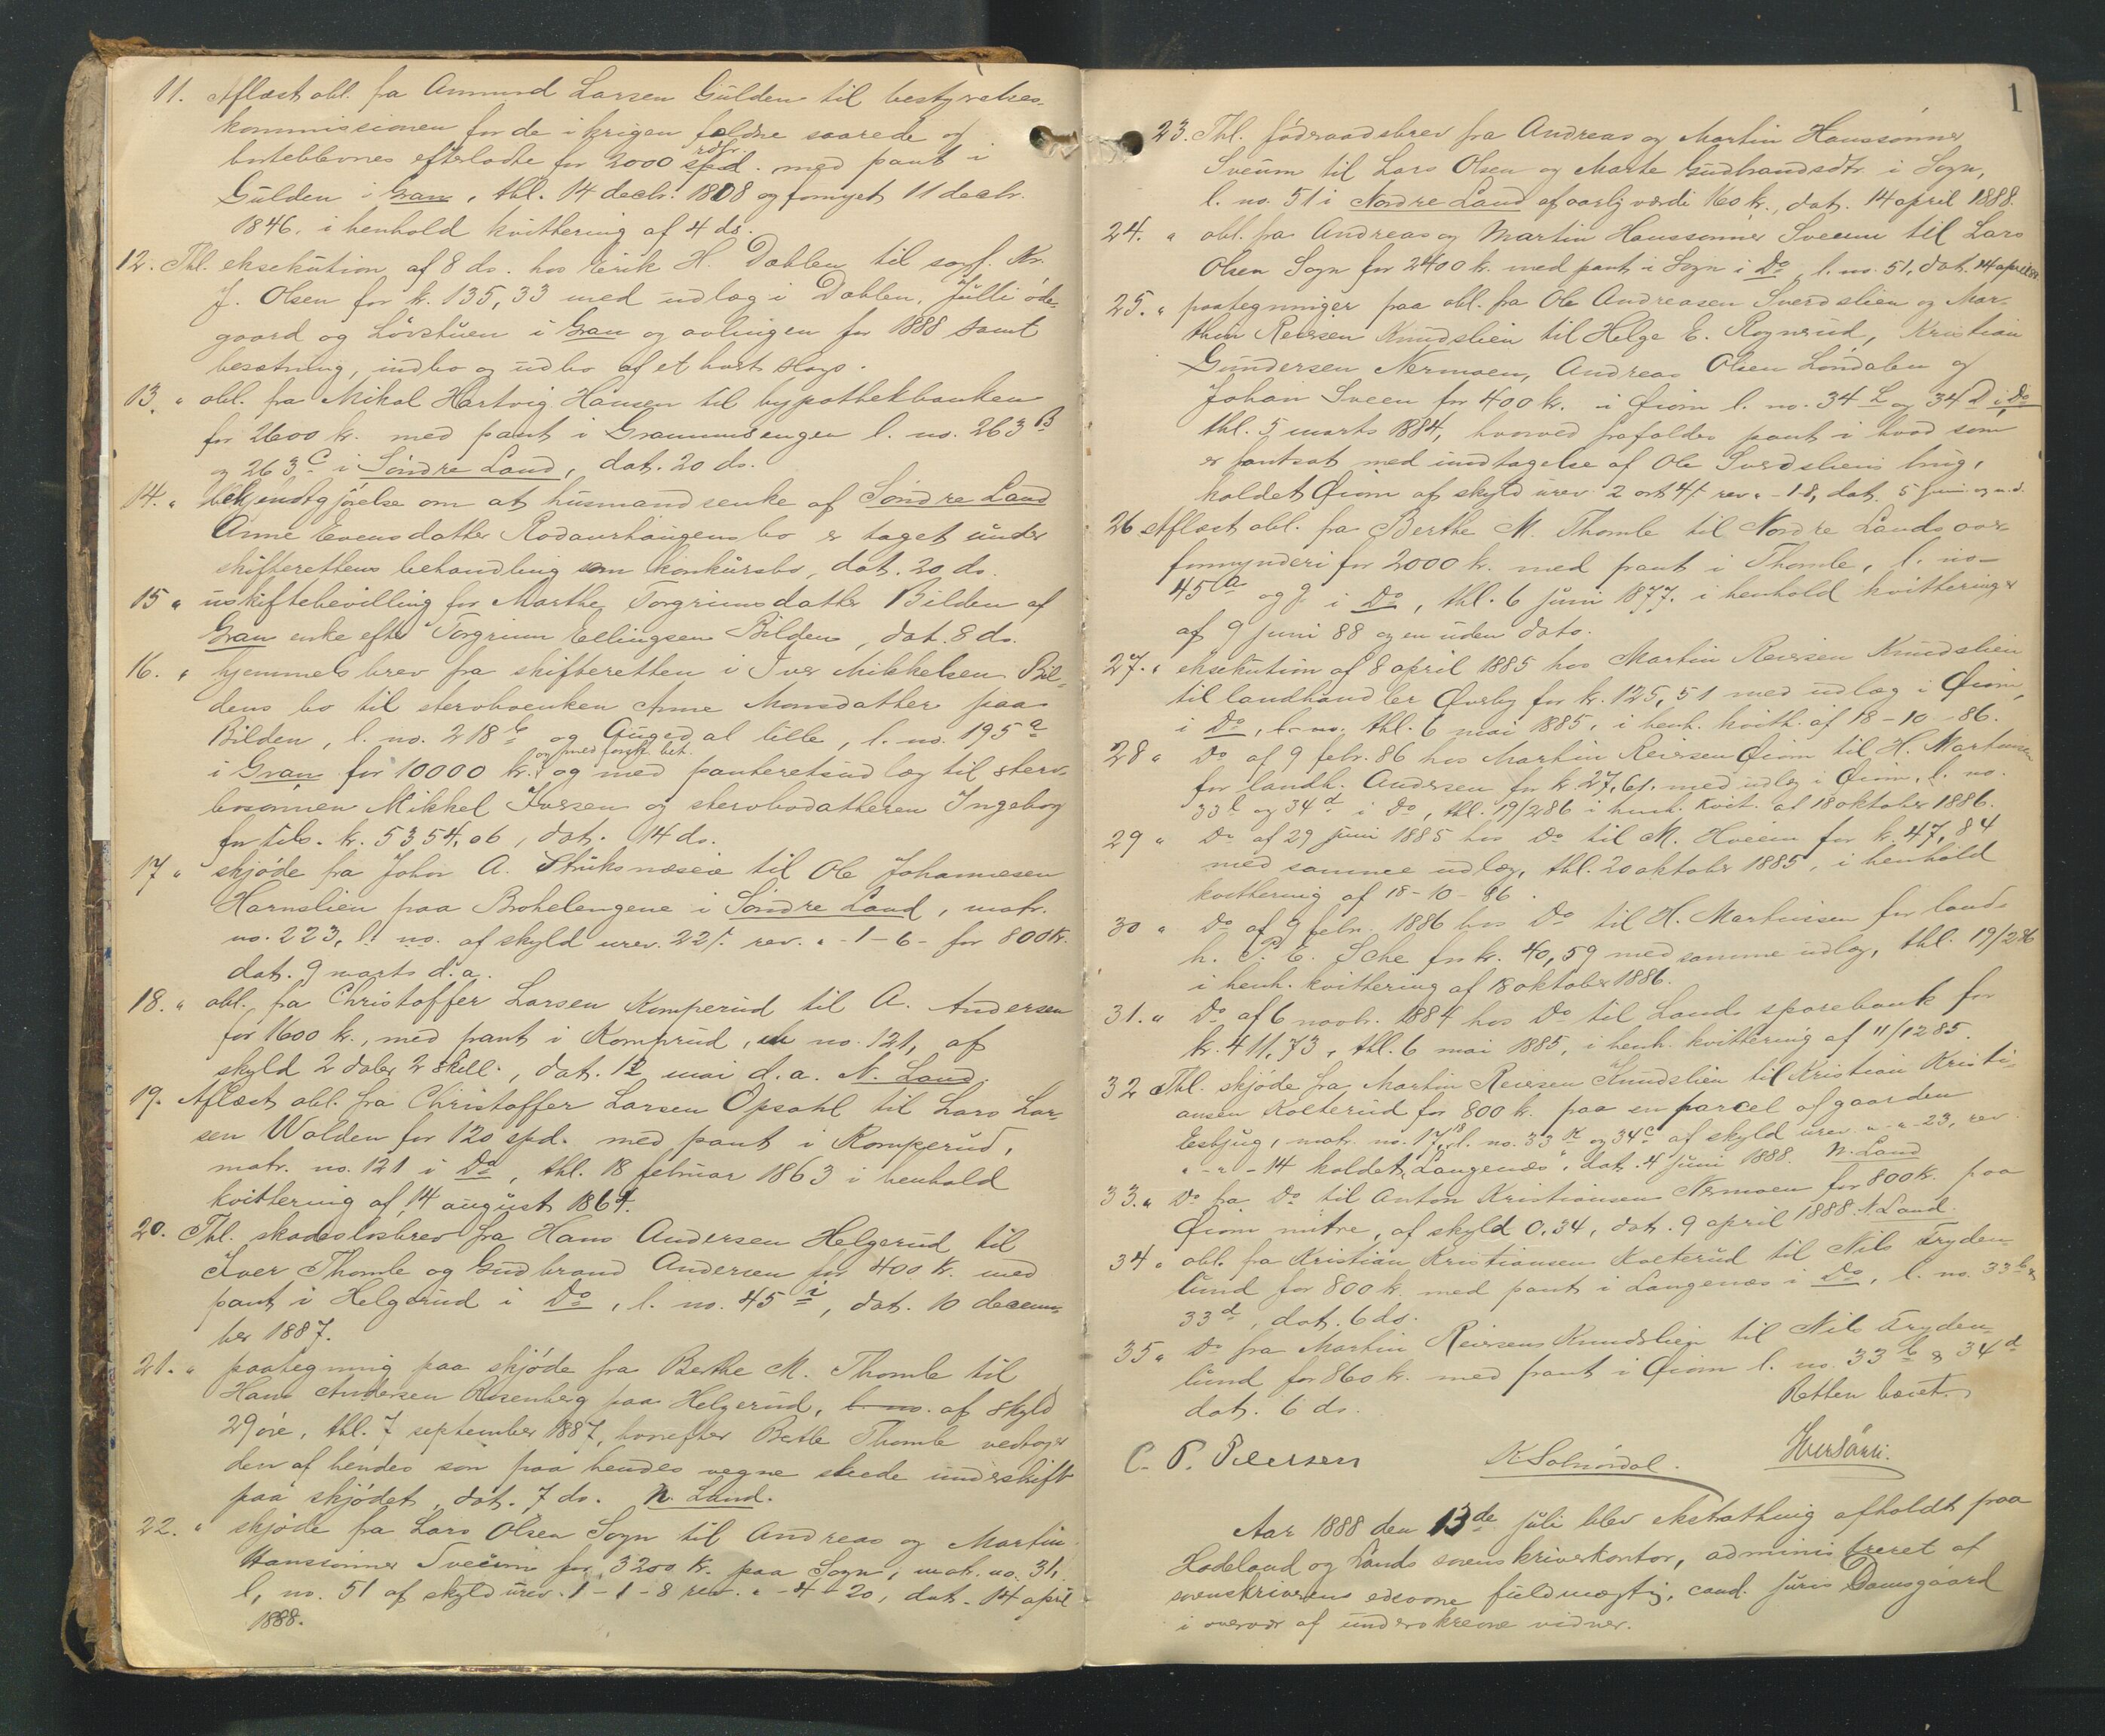 11. Aflæst obl. fra Amund Larsen Gulden til bestyrelses-
kommissionen for de i krigen faldne saarede og
efterladte for 2000 rdlr. spd. med pant i
Gulden i Gran, thl. 14 decbr. 1808 og fornyet 11 decbr.
1846, i henhold kvittering af 4 ds.
12. Thl. eksekution af 8 ds. hos Erik H. Dæhlen til sagf. Kr.
J. Olsen for k. 135,33 med udlæg i Dæhlen, Julli øde-
gaard og Løvstuen i Gran og avlingen for 1888 samt
besætning, indbo og udbo af et hvert slags.
13. " obl. fra Mikal Hartvig Hansen til hypothekbanken
for 2600 kr. med pant i Grammsengen l. no. 263 B
og 263 C i Søndre Land, dat. 20 ds.
14. " Bekjendtgjørelse om at husmandsenke af Søndre Land
Anne Evensdatter Rødaurhaugens bo er taget under
skifterettens behandling som konkursbo, dat. 20 ds.
15 " uskiftebevilling for Marthe Torgrimsdatter Bilden af
Gran enke efter Torgrim Ellingsen Bilden, dat. 8 ds.
16. " hjemmelsbrev fra skifteretten i Iver Mikkelsen Bil-
dens bo til stervboenken Anne Monsdatter paa
Bilden, l. no. 218 b og Augedal lille, l. no. 195 a
og med forsk. bet.
i Gran for 10000 kr. og med panteretsudlæg til sterv-
bosønnen Mikkel Iversen og stervbodatteren Ingeborg
for tils. kr. 5354,06, dat. 14 ds.
17 " skjøde fra Johs A. Struksnæseie til Ole Johannesen
Harnslien paa Brohelengene i Søndre Land, matr.
no. 223, l. no. af skyld urev. 22 s. rev. " - 1 - 6 - for 800 kr.
dat. 9 marts d.a.
18. " obl. fra Christoffer Larsen Komperud til A. Andersen
for 1600 kr., med pant i Komprud, no. 121, af
skyld 2 daler 2 skill., dat. 12 mai d.a. N. Land
19. Aflæst obl. fra Christoffer Larsen Opsahl til Lars Lar-
sen Wolden for 120 spd. med pant i Komperud,
matr. no. 121 i Do, thl. 18 februar 1863 i henhold
kvittering af 14 august 1864.
20. Thl. skadesløsbrev fra Hans Andersen Helgerud til
Iver Thomle og Gudbrand Andersen for 400 kr. med
pant i Helgerud i Do, l. no. 45 r, dat. 10 decem-
ber 1887.
21. " paategning paa skjøde fra Berthe M. Thomle til
Hans Andersen Rosenberg paa Helgerud, l. no. af skyld
29 øre, thl. 7 september 1887, hvorefter Berthe Thomle vedtager
den af hendes søn paa hendes vegne skede underskift
paa skjødet, dat. 7 ds. N. Land.
22. " skjøde fra Lars Olsen Sogn til Andreas og Martin
Hanssønner Sveum for 3200 kr. paa Sogn, matr. no. 31,
l. no. 51 af skyld urev. 1 - 1 - 8 rev. " - 4 - 20, dat. 14 april
1888.
1
23. Thl. føderaadsbrev fra Andreas og Martin Hanssønner
Sveum til Lars Olsen og Marte Gudbrandsdtr. i Sogn,
l. no. 51 i Nordre Land af aarlig værdi 160 kr., dat. 14 april 1888.
24. " obl. fra Andreas og Martin Hanssønner Sveum til Lars
Olsen Sogn for 2400 kr. med pant i Sogn i Do, l. no. 51, dat. 14 april
25. " paategninger paa obl. fra Ole Andreasen Sverdslien og Mar-
thin Reiersen Knudslien til Helge E. Rognerud, Kristian
Gundersen Nermoen, Andreas Olsen Londalen og
Johan Sveen for 400 kr. i Øiom l. no. 34 L og 34 D i Do
thl. 5 marts 1884, hvorved frafaldes pant i hvad som
er pantsat med undtagelse af Ole Sverdsliens brug,
kaldet Øiom af skyld urev. 2 ort 4 s. rev. " - 1 - 8, dat. 5 juni og u.d.
26 Aflæst obl. fra Berthe M. Thomle til Nordre Lands over-
formynderi for 2000 kr. med pant i Thomle, l. no.
45 a og g i Do, thl. 6 juni 1877. i henhold kvitteringer
af 9 juni 88 og en uden dato.
27. " eksekution af 8 april 1885 hos Martin Reiersen Knudslien
til landhandler Øverby for kr. 125,51 med udlæg i Øiom,
i Do, l. no. thl. 6 mai 1885, i henh. kvitt. af 18-10-86.
28 " Do af 9 febr. 86 hos Martin Reiersen Øiom til H. Martinsen
for landh. Andersen for kr. 27,61. med udlæg i Øiom, l. no.
33 l og 34 d i Do, thl. 19/2 86 i henh. kvit. af 18 oktober 1886.
29 " Do af 29 juni 1885 hos Do til M. Hveem for kr. 47,84
med samme udlæg, thl. 20 oktober 1885, i henhold
kvittering af 18-10-86.
30 " Do af 9 febr. 1886 hos Do til H. Martinsen for land-
h. P. E. Sche for kr. 40,59 med samme udlæg, thl. 19/2 86
i henh. kvittering af 18 oktober 1886.
31. " Do af 6 novbr. 1884 hos Do til Lands sparebank for
kr. 411,73, thl. 6 mai 1885, i henh. kvittering af 11/12 85.
32 Thl. skjøde fra Martin Reiersen Knudslien til Kristian Kristi-
ansen Kolterud for 800 kr. paa en parcel af gaarden
Esbjug, matr. no. 17, 18 l. no. 33 k og 34 c af skyld urev. " - " - 23, rev.
" - " - 14 kaldet "Langenæs", dat. 4 juni 1888. N. Land
33. " Do fra Do til Anton Kristiansen Nermoen for 800 k. paa
Øiom mitre, af skyld 0,34, dat. 9 april 1888. N. Land.
34 " obl. fra Kristian Kristiansen Kolterud til Nils Tryden-
lund for 800 k. med pant i Langenæs i Do, l. no. 33 b &
33 d, dat. 6 ds.
35 " Do fra Martin Reiersen Knudslien til Nils Tryden-
lund for 860 k. med pant i Øiom l. no. 33 b & 34 d
dat. 6 ds. Retten hævet.
C. P. Pedersen K Solnørdal.
Aar 1888 den 13de juli blev ekstrathing afholdt paa
Hadeland og Lands sorenskriverkontor, administreret af
sorenskriverens edsvorne fuldmægtig, cand. juris Damsgaard
i overvær af underskrevne vidner.